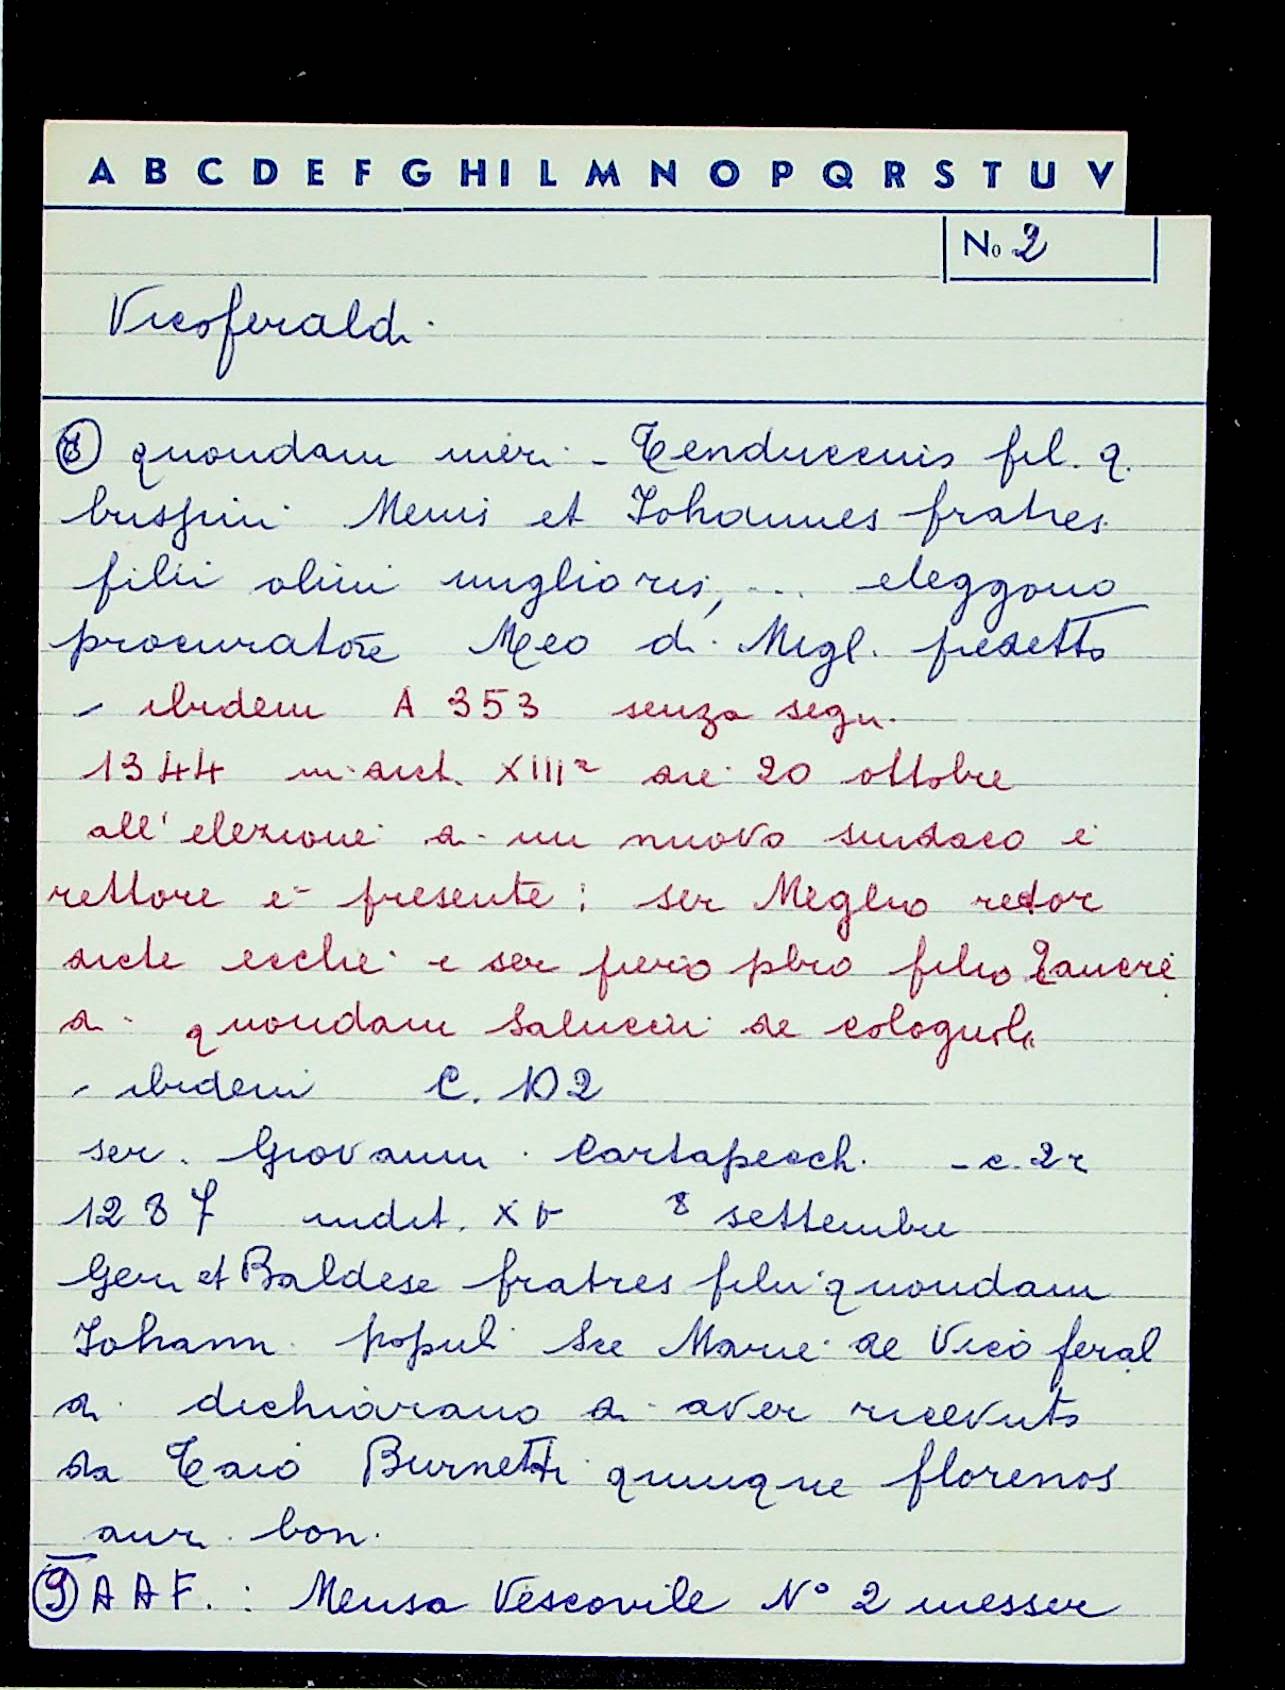 A B C D E F G H I L M N O P Q R S T U V
No 2
Vicoferaldi
8 quondam
fil. q.
et Johannes fratres
filii olim miglioris, ... eleggono
procuratore Meo di Migl. predetto
- ibidem A 353 senza segn.
1344 indict. XIIIª die 20 ottobre
all' elezione di un nuovo sindaco e
rettore è presente: ser Meglio rector
dicte ecclie e ser piero pbro filio
di quondam Salucci de colognole
- ibidem C. 102
ser Giovanni Cartapecch. - c. 2r
1287 indit. XV 8 settembre
Geri et Baldese fratres filii quondam
Johann. populi Sce Marie de Vico feral
di dichiarano di aver ricevuto
da Burnetti quinque florenos
aur. bon.
9 A A F. : Mensa Vescovile N° 2 messer